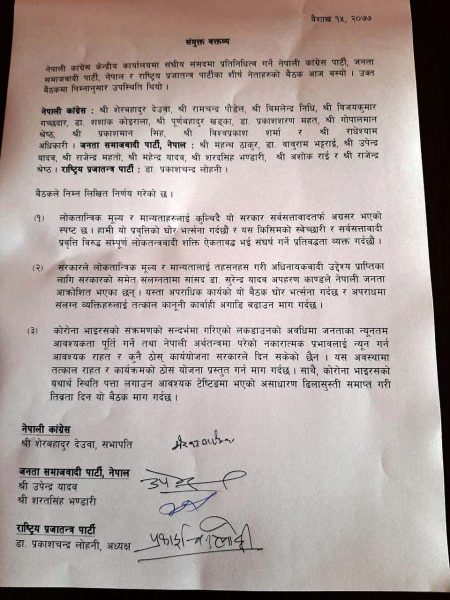 बैशाख १५, २०७७
संयुक्त वक्तव्य
नेपाली कांग्रेस केन्द्रीय कार्यालयमा संघीय संसदमा प्रतिनिधित्व गर्ने नेपाली कांग्रेस पार्टी, जनता
समाजवादी पार्टी, नेपाल र राष्ट्रिय प्रजातन्त्र पार्टीका शीर्ष नेताहरुको बैठक आज बस्यो । उक्त
बैठकमा निम्नानुसार उपस्थिति थियो ।
नेपाली कांग्रेस : श्री शेरबहादुर देउवा, श्री रामचन्द्र पौडेल, श्री विमलेन्द्र निधि, श्री विजयकुमार
गच्छदार, डा. शशांक कोइराला, श्री पूर्णबहादुर खड्का, डा. प्रकाशशरण महत, श्री गोपालमान
श्रेष्ठ, श्री प्रकाशमान सिंह, श्री विश्वप्रकाश शर्मा र श्री राधेश्याम
अधिकारी । जनता समाजवादी पार्टी, नेपाल : श्री महन्थ ठाकुर, डा. बाबुराम भट्टराई, श्री उपेन्द्र
यादव, श्री राजेन्द्र महतो, श्री महेन्द्र यादव, श्री शरदसिंह भण्डारी, श्री अशोक राई र श्री राजेन्द्र
श्रेष्ठ । राष्ट्रिय प्रजातन्त्र पार्टी : डा. प्रकाशचन्द्र लोहनी ।
बैठकले निम्न लिखित निर्णय गरेको छ ।
(१) लोकतान्त्रिक मूल्य र मान्यताहरुलाई कुल्चिदै यो सरकार सर्वसत्तावादतर्फ अग्रसर भएको
स्पष्ट छ । हामी यो प्रवृत्तिको घोर भर्त्सना गर्दछौं र यस किसिमको स्वेच्छारी र सर्वसत्तावादी
प्रवृत्ति विरुद्ध सम्पूर्ण लोकतन्त्रवादी शक्ति ऐक्यबद्ध भई संघर्ष गर्ने प्रतिबद्धता व्यक्त गर्दछौं ।
(२) सरकारले लोकतान्त्रिक मूल्य र मान्यतालाई तहसनहस गरी अधिनायकवादी उद्देश्य प्राप्तिका
लागि सरकारको समेत संलग्नतामा सांसद डा. सुरेन्द्र यादव अपहरण काण्डले नेपाली जनता
आक्रोशित भएका छन् । यस्ता अपराधिक कार्यको यो बैठक घोर भर्त्सना गर्दछ र अपराधमा
संलग्न व्यक्तिहरुलाई तत्काल कानूनी कार्वाही अगाडि बढाउन माग गर्दछ ।
(३) कोरोना भाइरसको संक्रमणको सन्दर्भमा गरिएको लकडाउनको अवधिमा जनताका न्यूनतम
आवश्यकता पूर्ति गर्ने तथा नेपाली अर्थतन्त्रमा परेको नकारात्मक प्रभावलाई न्यून गर्न
आवश्यक राहत र कुनै ठोस् कार्ययोजना सरकारले दिन सकेको छैन । यस अवस्थामा
तत्काल राहत र कार्यक्रमको ठोस योजना प्रस्तुत गर्न माग गर्दछ । साथै, कोरोना भाइरसको
यथार्थ स्थिति पत्ता लगाउन आवश्यक टेष्टिङमा भएको असाधारण ढिलासुस्ती समाप्त गरी
तिब्रता दिन यो बैठक माग गर्दछ ।
नेपाली कांग्रेस
श्री शेरबहादुर देउवा, सभापति
जनता समाजवादी पार्टी, नेपाल
श्री उपेन्द्र यादव
श्री शरतसिंह भण्डारी
राष्ट्रिय प्रजातन्त्र पार्टी
डा. प्रकाशचन्द्र लोहनी, अध्यक्ष